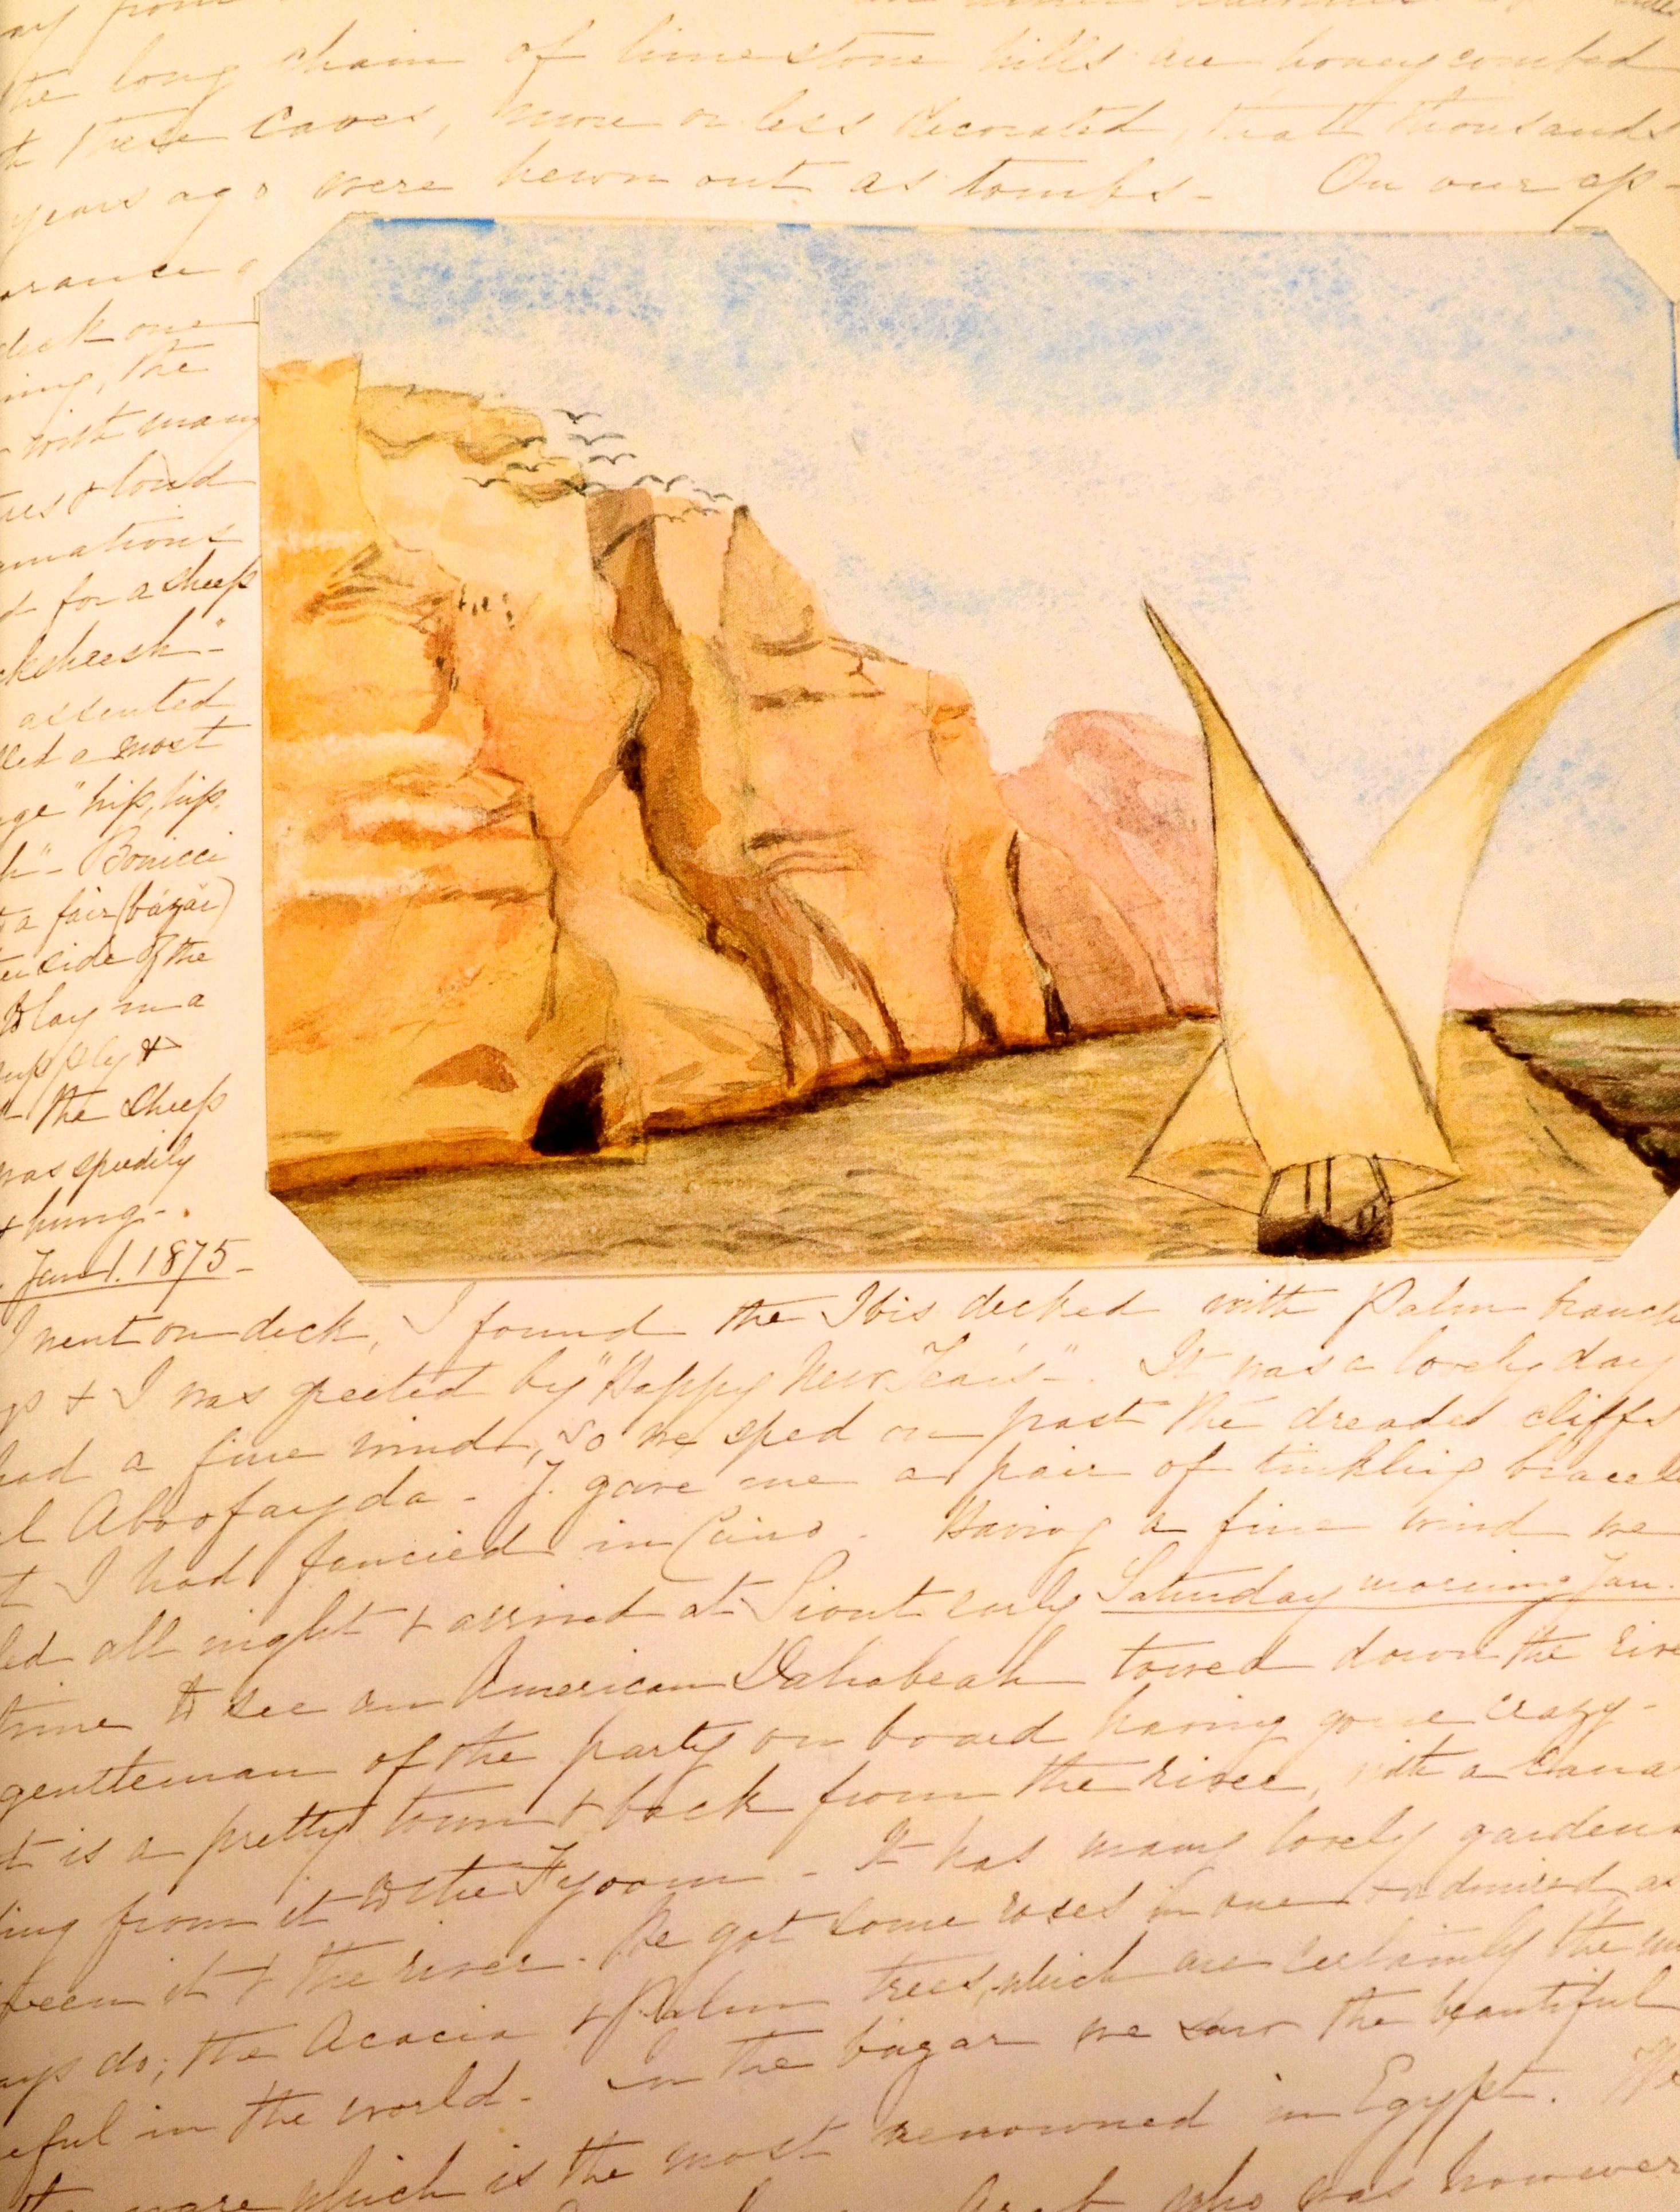 the long chain of limestone hills are honeycombed
these caves, more or less decorated, that thousands
years ago were hewn out as tombs - On our ap-
arance
deck one
ing, the
with many
& loud
mations
for a sheep
cksheesh" -
assented
led a most
ge "hip, hip,
h" - Bonicci
a fair (bázár)
side of the
lay in a
supply &
- the sheep
was speedily
& hung -
Jan 1. 1875 -
I went on deck, I found the Ibis decked with Palm branch
& I was greeted by "Happy New Year's" - . It was a lovely day
had a fine wind, so we sped on past the dreaded cliffs
l Aboofayda - J. gave me a pair of tinkling bracel
t I had fancied in Cairo - Having a fine wind we
led all night & arrived at Siout early Saturday morning Jan.
time to see an American Dahabeah towed down the rive
gentleman of the party on board having gone crazy -
t is a pretty town & back from the river, with a cana
ing from it to the Fyoom - It has many lovely gardens
tween it & the river. We got some roses in one & admired, as
ays do; the Acacia & Palm trees, which are certainly the
eful in the world - In the bazar we saw the beautiful
ware which is the most renowned in Egypt. We
Arab who was however